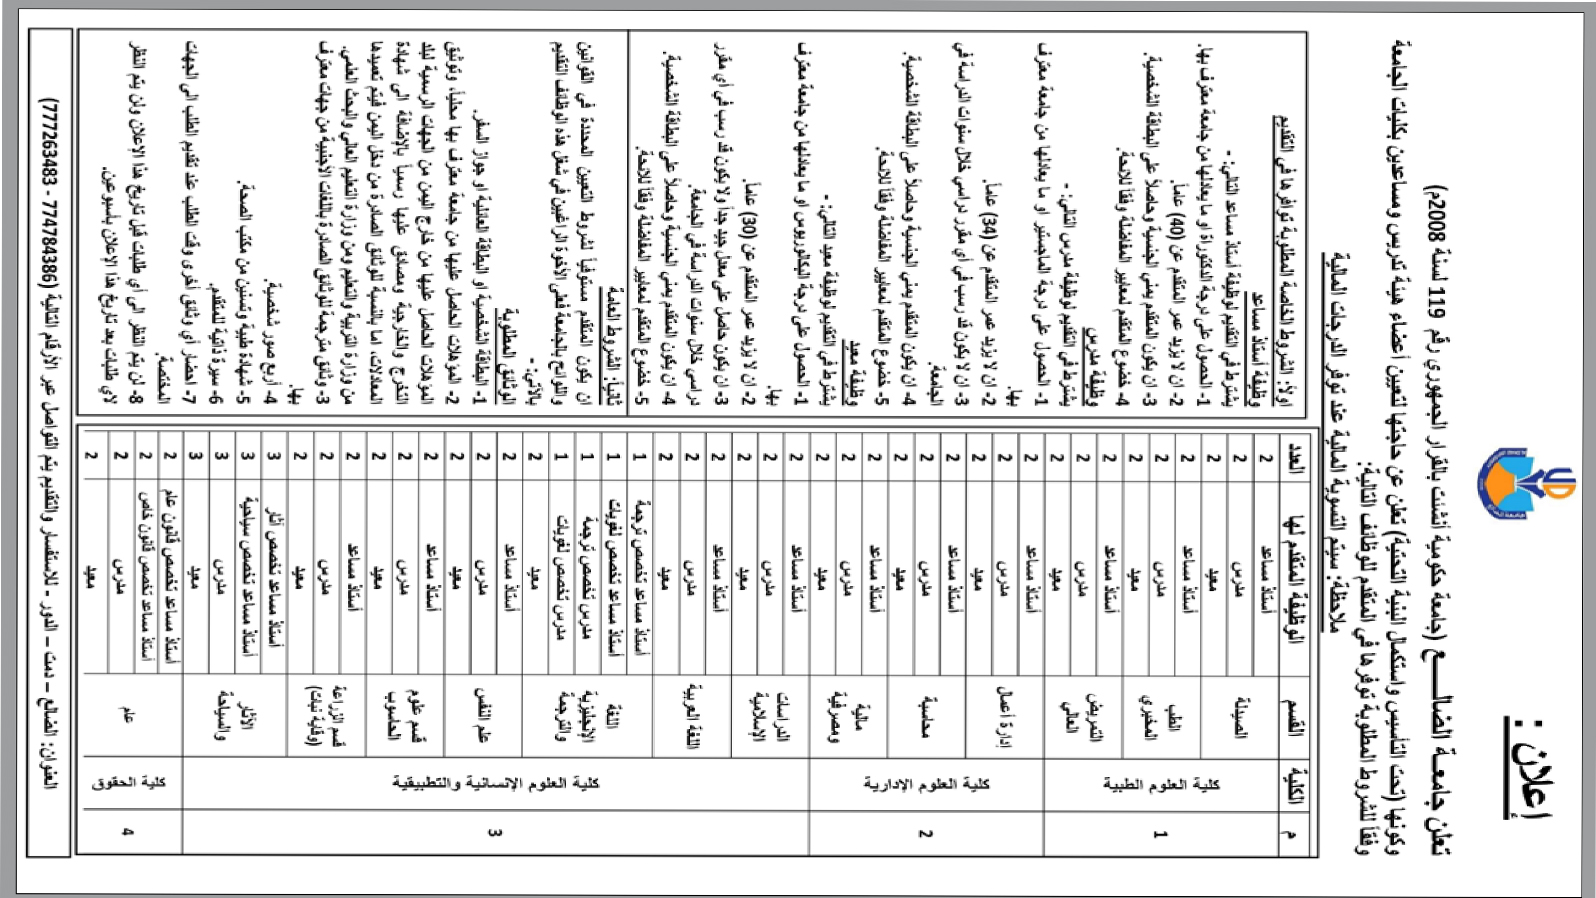 إعلان :
تعلن جامعة الضالـــــع (جامعة حكومية أنشئت بالقرار الجمهوري رقم 119 لسنة 2008م)
وكونها (تحت التأسيس واستكمال البنية التحتية) تعلن عن حاجتها لتعيين أعضاء هيئة تدريس ومساعدين بكليات الجامعة
وفقاً للشروط المطلوبة توفرها في المتقدم للوظائف التالية:
ملاحظة: سيتم التسوية المالية عند توفر الدرجات المالية
م الكلية القسم الوظيفة المتقدم لها العدد
1 كلية العلوم الطبية
الصيدلة
أستاذ مساعد 2
مدرس 2
معيد 2
الطب المخبري
أستاذ مساعد 2
مدرس 2
معيد 2
التمريض العالي
أستاذ مساعد 2
مدرس 2
معيد 2
2 كلية العلوم الإدارية
إدارة أعمال
أستاذ مساعد 2
مدرس 2
معيد 2
محاسبة
أستاذ مساعد 2
مدرس 2
معيد 2
مالية ومصرفية
أستاذ مساعد 2
مدرس 2
معيد 2
3 كلية العلوم الإنسانية والتطبيقية
الدراسات الإسلامية
أستاذ مساعد 2
مدرس 2
معيد 2
اللغة العربية
أستاذ مساعد 2
مدرس 2
معيد 2
اللغة الإنجليزية والترجمة
أستاذ مساعد تخصص ترجمة 1
أستاذ مساعد تخصص لغويات 1
مدرس تخصص ترجمة 1
مدرس تخصص لغويات 1
معيد 2
علم النفس
أستاذ مساعد 2
مدرس 2
معيد 2
قسم علوم الحاسوب
أستاذ مساعد 2
مدرس 2
معيد 2
قسم الزراعة (وقاية نبات)
أستاذ مساعد 2
مدرس 2
معيد 2
الآثار والسياحة
أستاذ مساعد تخصص آثار 3
أستاذ مساعد تخصص سياحية 3
مدرس 3
معيد 3
4 كلية الحقوق
عام
أستاذ مساعد تخصص قانون عام 2
أستاذ مساعد تخصص قانون خاص 2
مدرس 2
معيد 2
اولاً: الشروط الخاصة المطلوبة توافرها في التقديم
وظيفة أستاذ مساعد
يشترط في التقديم لوظيفة أستاذ مساعد التالي: -
1- الحصول على درجة الدكتوراة او ما يعادلها من جامعة معترف بها.
2- ان لا يزيد عمر المتقدم عن (40) عاماً.
3- ان يكون المتقدم يمني الجنسية وحاصلاً على البطاقة الشخصية.
4- خضوع المتقدم لمعايير المفاضلة وفقاً للائحة.
وظيفة مدرس
يشترط في التقديم لوظيفة مدرس التالي: -
1- الحصول على درجة الماجستير او ما يعادلها من جامعة معترف
بها.
2- ان لا يزيد عمر المتقدم عن (34) عاماً.
3- ان لا يكون قد رسب في أي مقرر دراسي خلال سنوات الدراسة في
الجامعة.
4- ان يكون المتقدم يمني الجنسية وحاصلاً على البطاقة الشخصية.
5- خضوع المتقدم لمعايير المفاضلة وفقاً للائحة.
وظيفة معيد
يشترط في التقديم لوظيفة معيد التالي: -
1- الحصول على درجة البكالوريوس او ما يعادلها من جامعة معترف
بها.
2- ان لا يزيد عمر المتقدم عن (30) عاماً.
3- ان يكون حاصل على معدل جيد جداً ولا يكون قد رسب في أي مقرر
دراسي خلال سنوات الدراسة في الجامعة.
4- ان يكون المتقدم يمني الجنسية وحاصلاً على البطاقة الشخصية.
5- خضوع المتقدم لمعايير المفاضلة وفقاً للائحة.
ثانياً: الشروط العامة
ان يكون المتقدم مستوفياً لشروط التعيين المحددة في القوانين
واللوائح بالجامعة فعلى الأخوة الراغبين في شغل هذه الوظائف التقديم
بالآتي: -
الوثائق المطلوبة
1- البطاقة الشخصية او البطاقة العائلية او جواز السفر.
2- المؤهلات الحاصل عليها من جامعة معترف بها محلياً، وتوثيق
المؤهلات الحاصل عليها من خارج اليمن من الجهات الرسمية لبلد
التخرج والخارجية ومصادق عليها رسمياً بالإضافة الى شهادة
المعادلات، اما بالنسبة للوثائق الصادرة من دخل اليمن فيتم تعميدها
من وزارة التربية والتعليم ومن وزارة التعليم العالي والبحث العلمي.
3- وثائق مترجمة للوثائق الصادرة باللغات الأجنبية من جهات معترف
بها.
4- أربع صور شخصية.
5- شهادة طبية وتسنين من مكتب الصحة.
6- سيرة ذاتية للمتقدم.
7- احضار أي وثائق أخرى وقت الطلب عند تقديم الطلب الى الجهات
المختصة.
8- لن يتم النظر الى أي طلبات قبل تاريخ هذا الإعلان ولن يتم النظر
لاي طلبات بعد تاريخ هذا الإعلان بأسبوعين.
العنوان: الضالع – دمت – الدور - للاستفسار والتقديم يتم التواصل عبر الأرقام التالية (774784386 - 777263483)